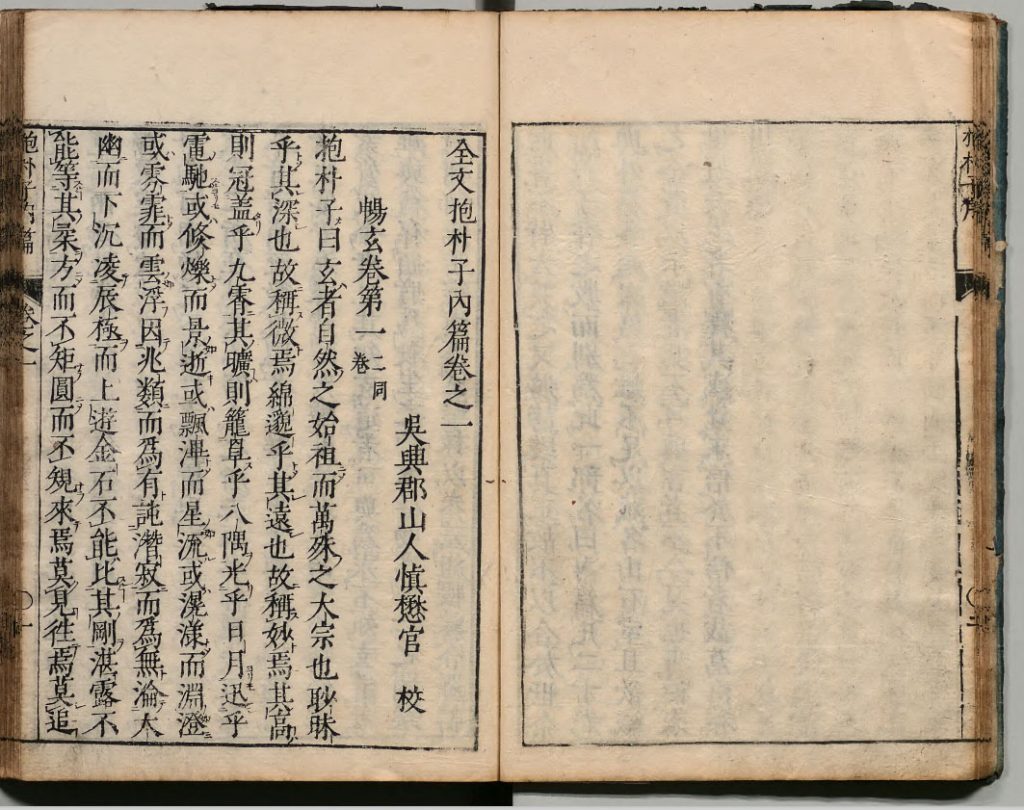 全文抱朴子內篇卷之一
吳興郡山人愼懋官 校
暢玄卷第一 二同卷
抱朴子曰玄者自然之始祖而萬殊之大宗也眇眛
乎其深也故稱微焉綿邈乎其遠也故稱妙焉其高
則冠盖乎九霄其曠則籠皐乎八隅光乎日月迅乎
電馳或倏爍而景逝或飄滭而星流或滉漾而淵澄
或雰霏而雲浮因兆類而爲有託潛寂而爲無淪大
幽而下沉凌辰極而上遊金石不能比其剛湛露不
能等其柔方而不矩圓而不規來焉莫見徃焉莫追
抱朴子內篇 卷之一 〇一